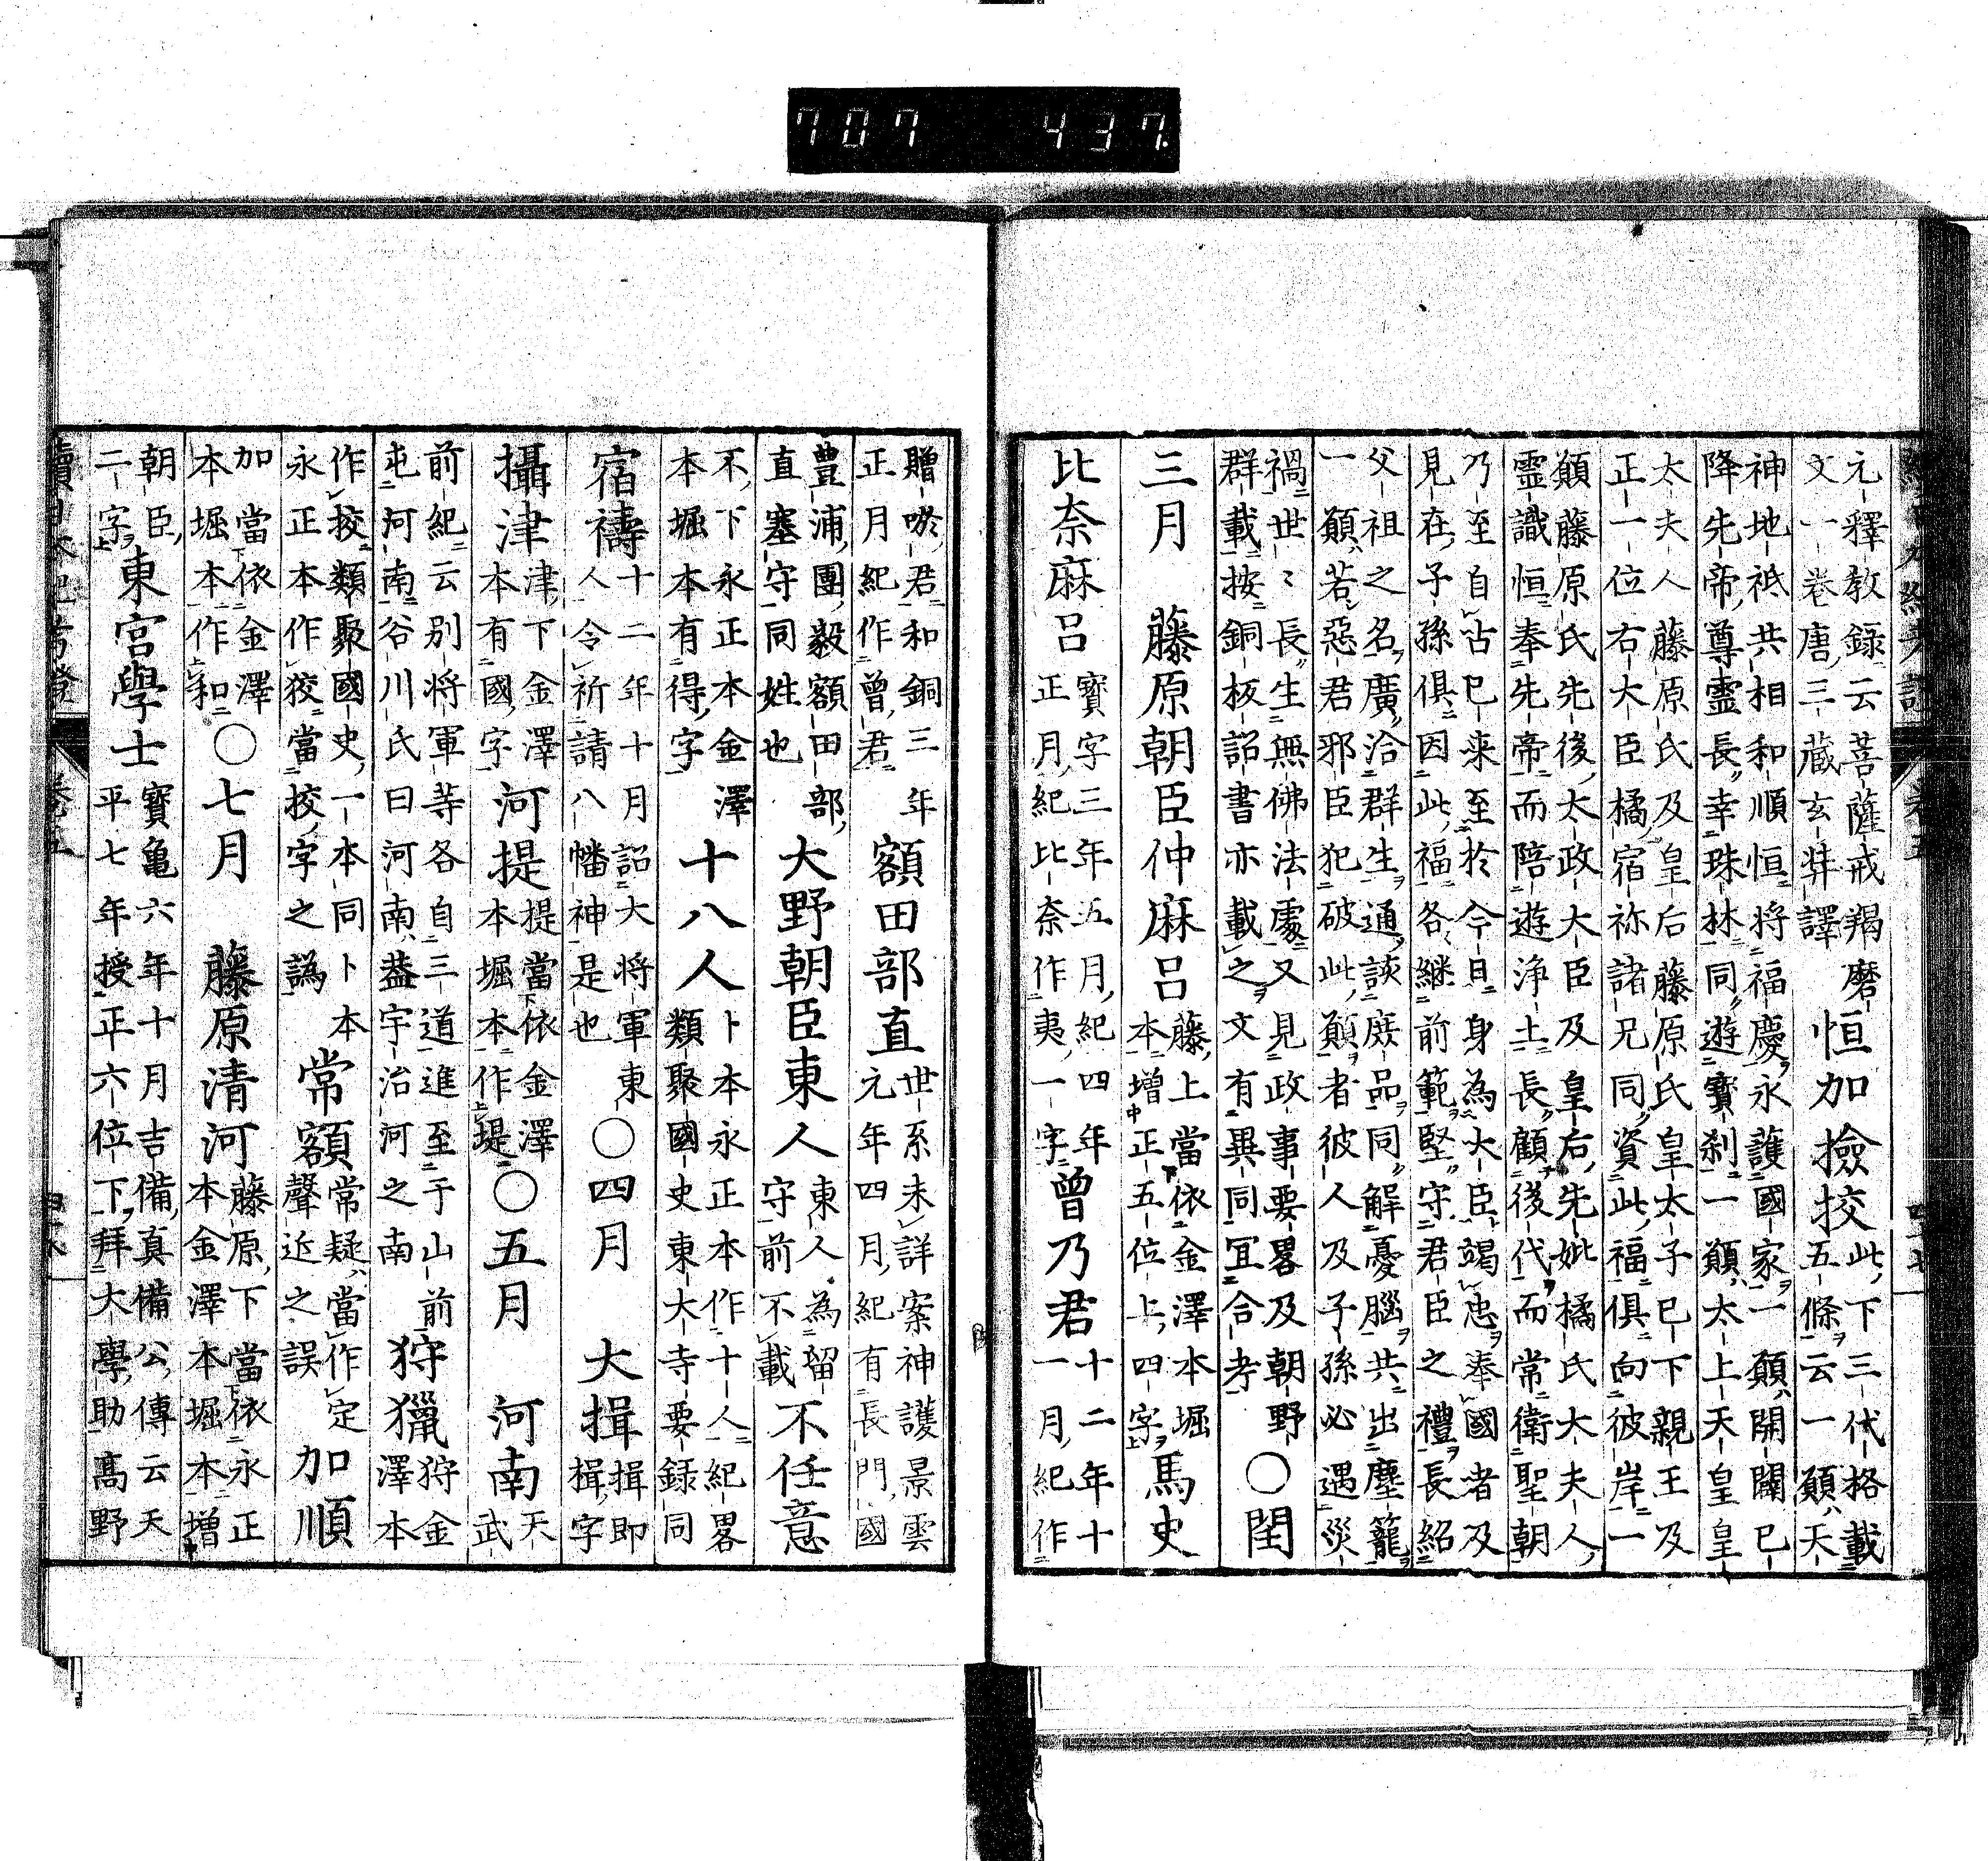 707 437.
元釋教錄云菩薩戒羯磨
文一卷唐三藏玄奘譯
恒加
撿挍
此下三代格載
五條云一願天
神地祇共相和順恒将福慶永護國家一願開闢已
降先帝尊靈長幸珠林同遊寶刹一願太上天皇皇
太夫人藤原氏及皇后藤原氏皇太子已下親王及
正一位右大臣橘宿祢諸兄同資此福俱向彼岸一
願藤原氏先後太政大臣及皇后先妣橘氏大夫人
靈識恒奉先帝而陪遊浄土長顧後代而常衛聖朝
乃至自古已来至於今日身為大臣竭忠奉國者及
見在子孫俱因此福各継前範堅守君臣之禮長紹
父祖之名廣洽群生通談庶品同解憂腦共出塵籠
一願若惡君邪臣犯破此願者彼人及子孫必遇災
禍世〻長生無佛法處又見政事要畧及朝野
群載按銅板詔書亦載之文有異同冝合考
〇閏
三月　藤原朝臣仲麻呂
藤上當依金澤本堀
本增正五位上四字
馬史
比奈麻呂
寶字三年五月紀四年
正月紀比奈作夷一字
曾乃君
十二年十
一月紀作
贈唹君和銅三年
正月紀作曾君
額田部直
世系未詳案神護景雲
元年四月紀有長門國
豊浦團毅額田部
直塞守同姓也
大野朝臣東人
東人為留
守前不載
不任意
不下永正本金澤
本堀本有得字
十八人
卜本永正本作十人紀畧
類聚國史東大寺要録同
宿禱
十二年十月詔大将軍東
人令祈請八幡神是也
〇四月　大揖
揖即
揖字
攝津
津下金澤
本有國字
河提
提當依金澤
本堀本作堤
〇五月　河南
天
武
前紀云別将軍等各自三道進至于山前
屯河南谷川氏曰河南葢宇治河之南
狩獵
狩金
澤本
作挍類聚國史一本同卜本
永正本作狡當挍字之譌
常額
常疑當作定
聲近之誤
加順
加當依金澤
本堀本作和
〇七月　藤原清河
藤原下當依永正
本金澤本堀本增
朝臣
二字
東宮學士
寶亀六年十月吉備真備公傳云天
平七年授正六位下拜大學助髙野